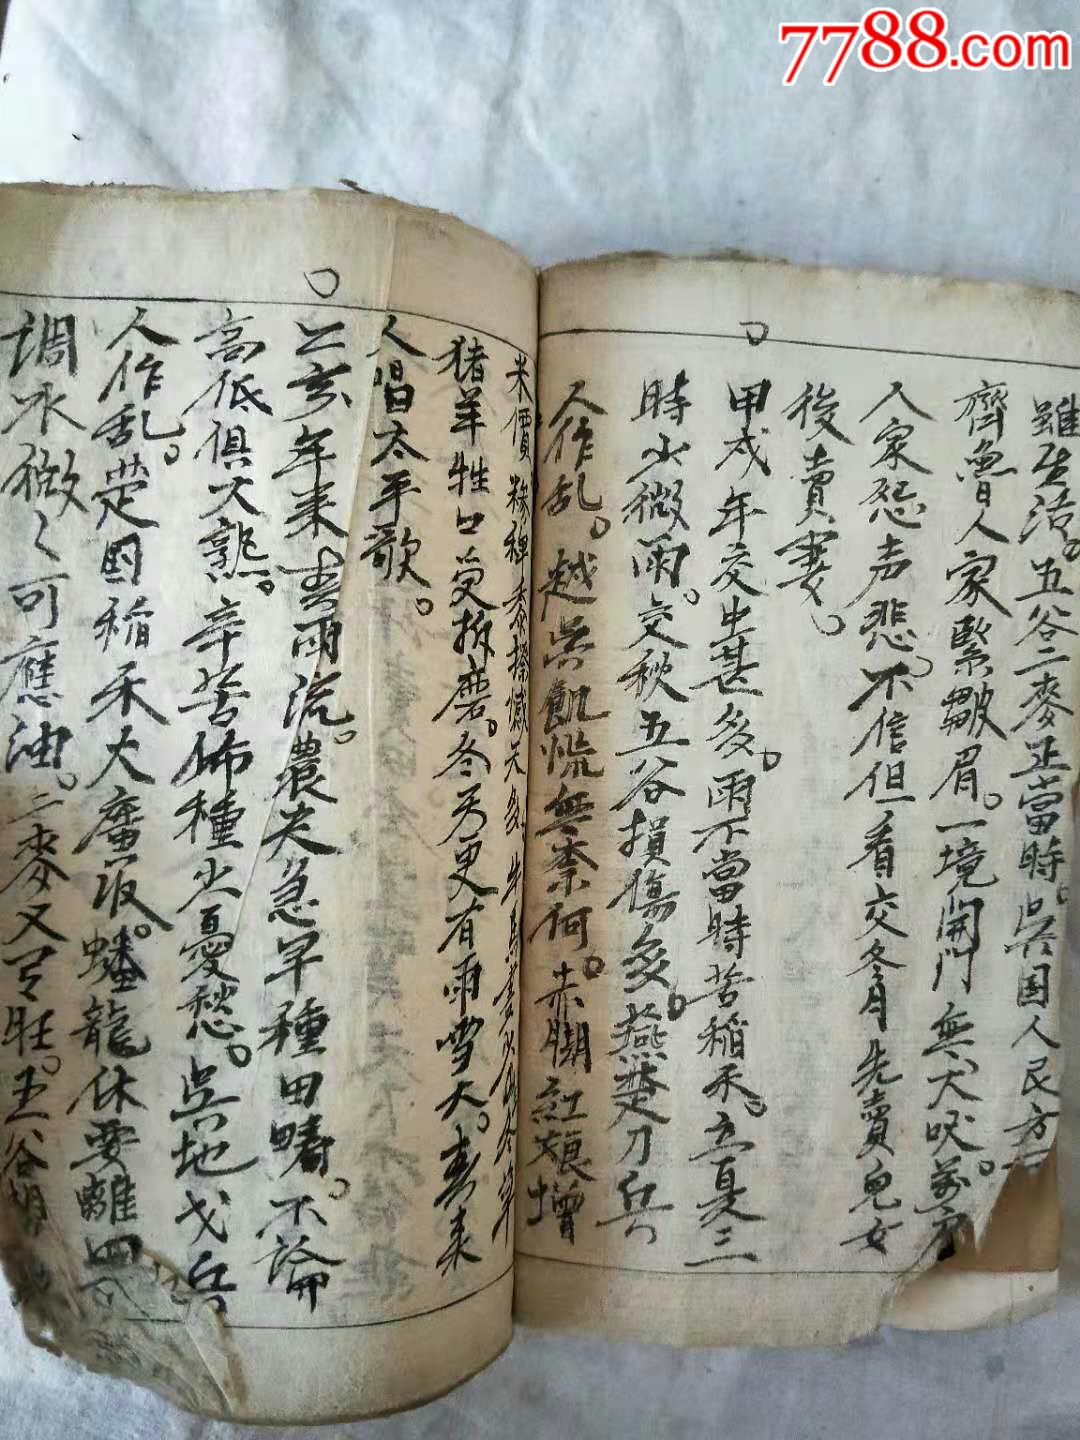 7788.com
雖生活。五谷二麥正當時。吳国人民方
齊魯人家緊皺眉。一境開門無犬吠。萬家
人家怨声悲。不信但看交冬月先賣兒女
後賣妻。
甲戌年交生甚多。雨不當時苦稲禾。立夏三
時少微雨。交秋五谷損傷多。燕楚刀兵
人作乱。越吳飢慌無柰何。赤脚紅娘增
米價 種黍 天 牛馬
猪羊牲口受折磨。冬天更有雨雪大。春来
人唱太平歌。
乙亥年来春雨流。農夫急早種田疇。不論
高低俱大熟。辛苦佈種少憂愁。吳地戈兵
人作乱。楚国稲禾大廣收。蟠龍休要離四
調水微〻可應油。二麥又旺。五谷